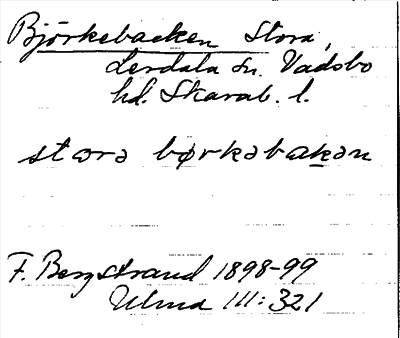 Björkebacken Stora,
Lerdala sn. Vadsbo
hd. Skarab. l.
stora børkəbakən
F. Bergstrand 1898-99
Ulma III: 321